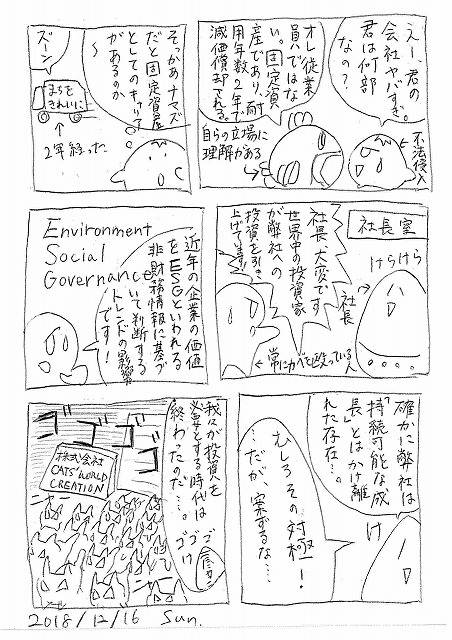 えー、君の
会社ヤバすぎ。
君は何部
なの？
不法侵入
オレ従業
員ではな
い。固定資
産であり、耐
用年数2年で
減価償却される。
自らの立場に
理解がある
そっかぁナマズ
だと固定資産
としてのキャリア
があるのか
〜
ズーン
まちを
きれいに
2年経った
社長室
けらけら
社長
社長、大変です
世界中の投資家
が弊社への
投資を引き
上げています！
常にカベを殴っている人
近年の企業の価値
をESGといわれる
非財務情報に基づ
いて判断する
トレンドの影響
です！
Environment
Social
Governance
確かに弊社は
「持続可能な成
長」とはかけ離
れた存在…。
け
むしろその対極！
…だが案ずるな…。
我々が投資を
必要とする時代は
終わったのだ…。
ゴゴゴ
け
ゴゴゴゴ
株式会社
CATS' WORLD
CREATION
2018/12/16 Sun.